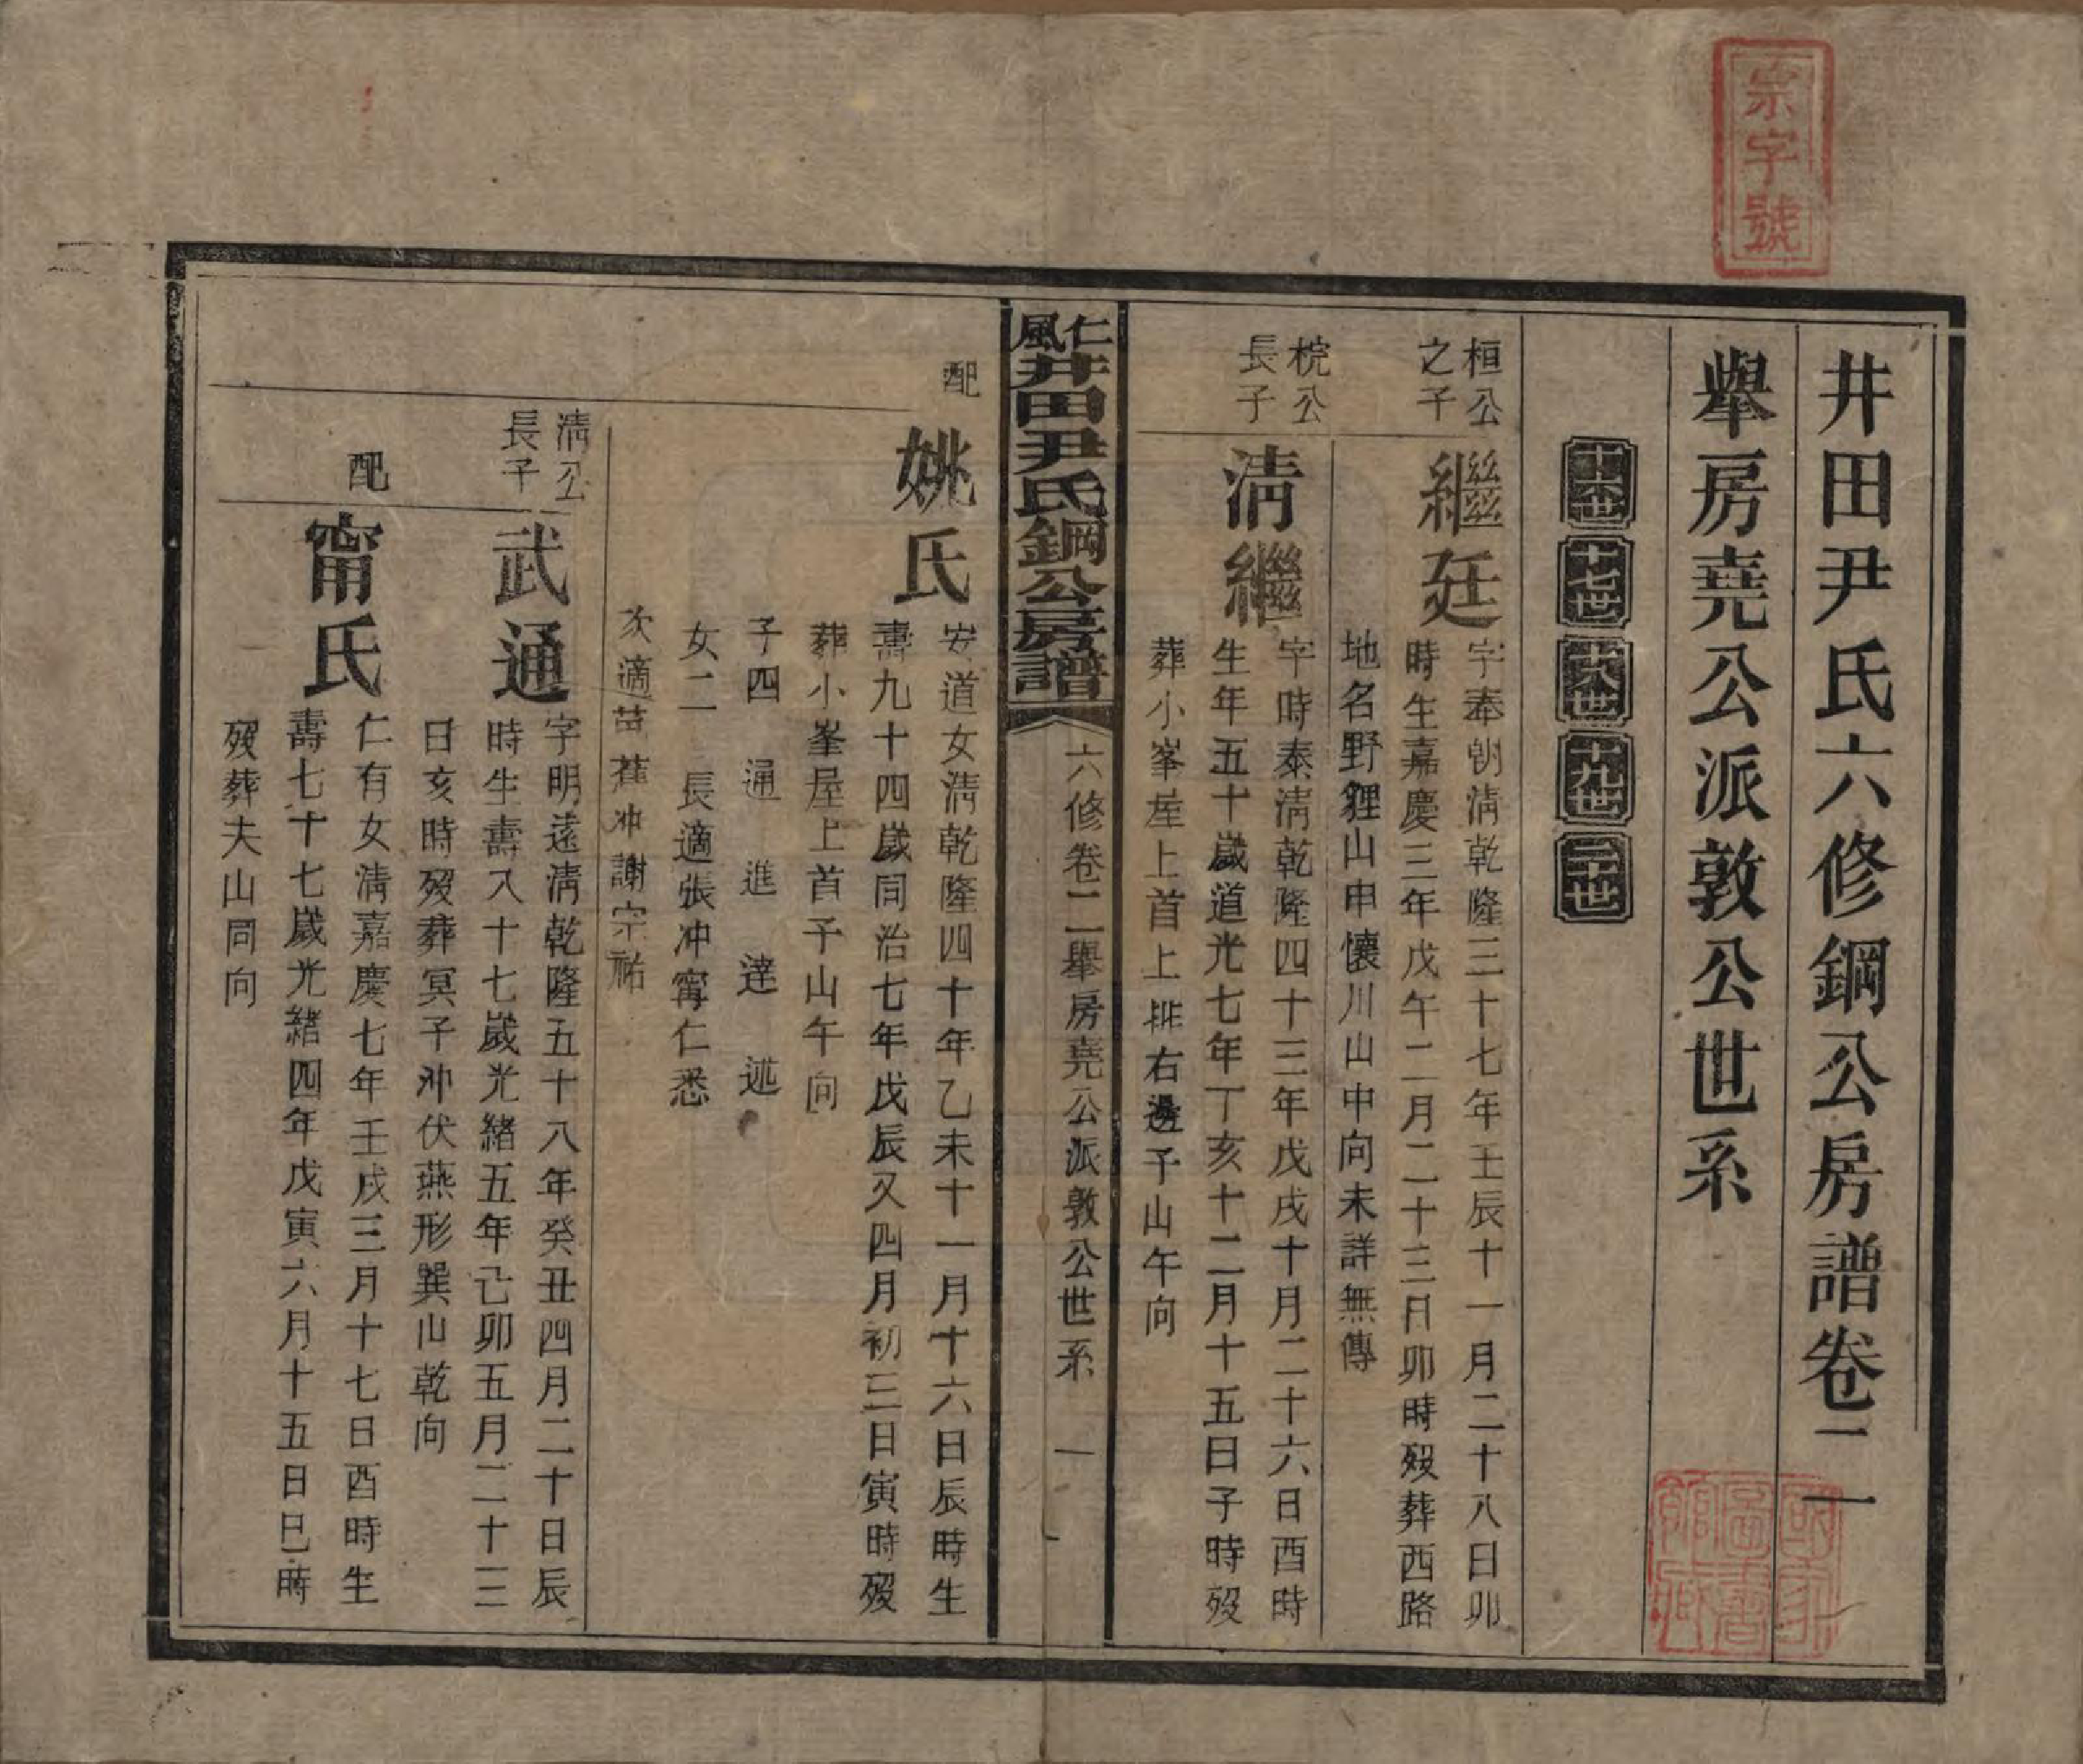 宗字號
井田尹氏六修鋼公房譜卷二
舉房堯公派敦公世系
十六世 十七世 十八世 十九世 二十世
桓公之子
繼廷
字奉朝淸乾隆三十七年壬辰十一月二十八日卯
時生嘉慶三年戊午二月二十三日卯時歿葬西路
地名野貍山申懷川山中向未詳無傳
梡公長子
淸繼
字時泰淸乾隆四十三年戊戌十月二十六日酉時
生年五十歲道光七年丁亥十二月十五日子時歿
葬小峯屋上首上排右邊子山午向
仁風井田尹氏鋼公房譜
六修卷二舉房堯公派敦公世系
一
配
姚氏
安道女淸乾隆四十年乙未十一月十六日辰時生
壽九十四歲同治七年戊辰又四月初三日寅時歿
葬小峯屋上首子山午向
子四 通 進 達 述
女二 長適張冲甯仁悉
次適苗蕉冲謝宗祐
淸公長子
武通
字明遠淸乾隆五十八年癸丑四月二十日辰
時生壽八十七歲光緒五年己卯五月二十三
日亥時歿葬冥子冲伏燕形巽山乾向
配
甯氏
仁有女淸嘉慶七年壬戌三月十七日酉時生
壽七十七歲光緒四年戊寅六月十五日巳時
歿葬夫山同向